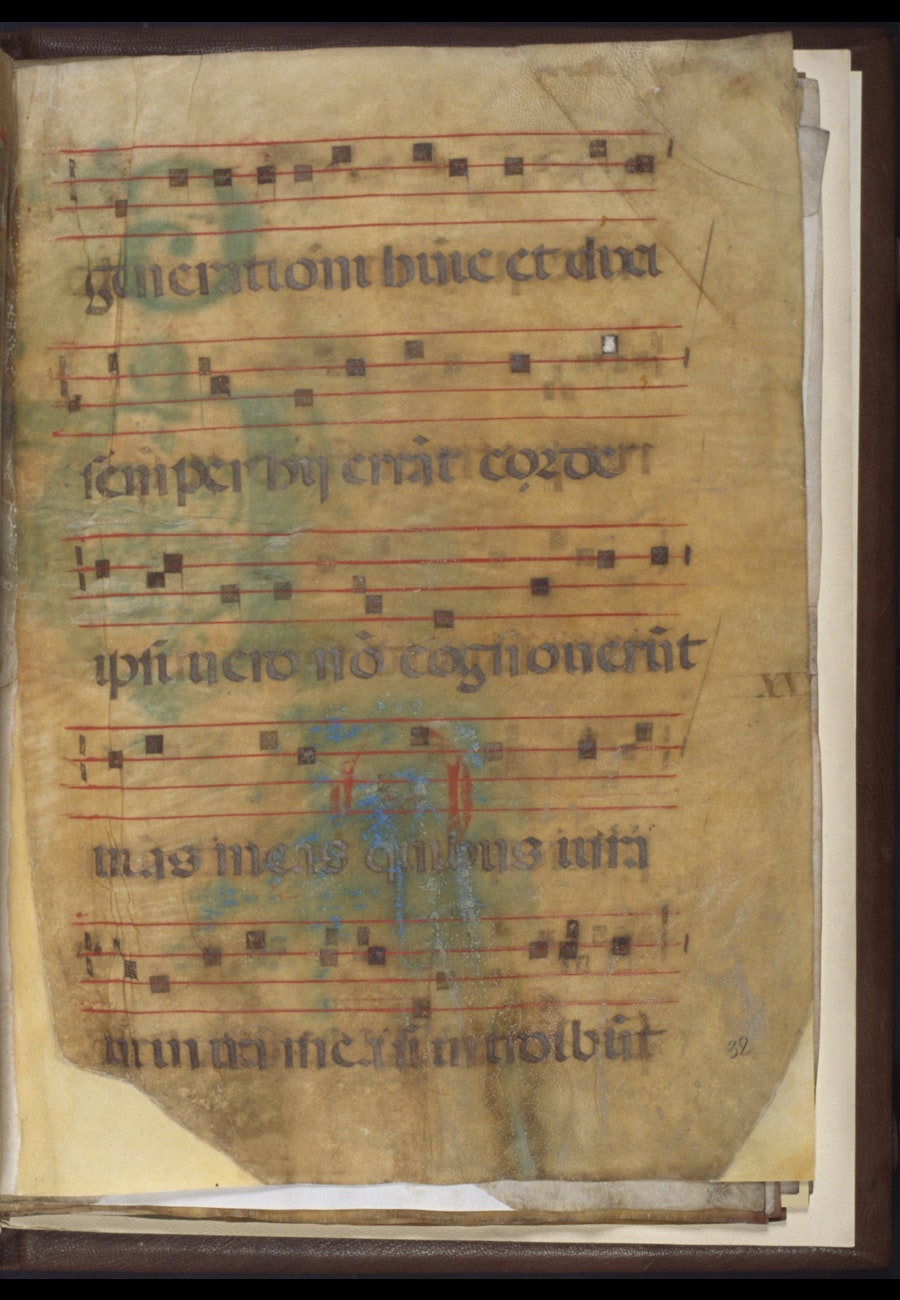 generationi huic et dixi
semper hij errāt corde
ipsi uero nō cognouerūt
uias meas quibus iuraui
in ira mea si introibūt
32